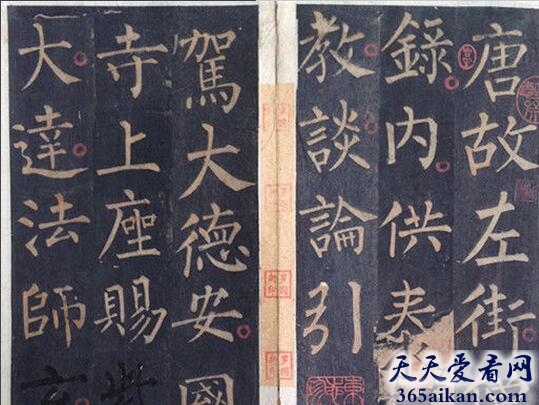 唐故左街
錄内供奉
教談論引
駕大德安國
寺上座賜
大達法師
天天爱看网
365aikan.com